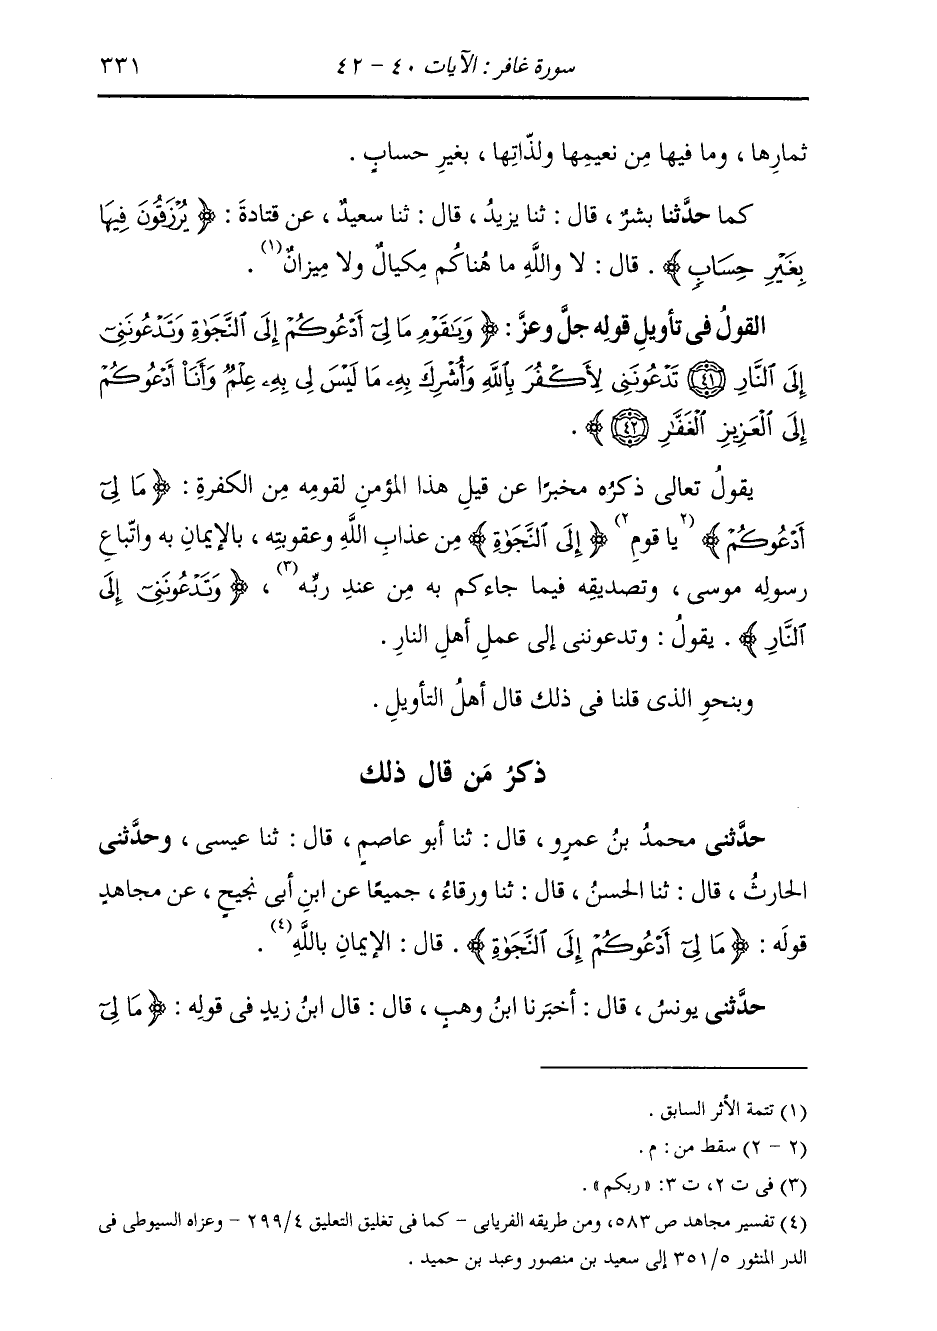 سورة غافر : الآيات ٤٠ - ٤٢ ٣٣١
ثمارِها ، وما فيها مِن نعيمِها ولذّاتِها ، بغيرِ حسابٍ .
كما حدَّثنا بشرٌ ، قال : ثنا يزيدُ ، قال : ثنا سعيدٌ ، عن قتادةَ : ﴿ يُرْزَقُونَ فِيهَا
بِغَيْرِ حِسَابٍ ﴾ . قال : لا واللَّهِ ما هُناكُم مِكيالٌ ولا مِيزانٌ(١) .
القولُ فى تأويلِ قولِه جلَّ وعزَّ : ﴿ وَيَٰقَوْمِ مَا لِىٓ أَدْعُوكُمْ إِلَى ٱلنَّجَوٰةِ وَتَدْعُونَنِىٓ
إِلَى ٱلنَّارِ ٤١ تَدْعُونَنِى لِأَكْفُرَ بِٱللَّهِ وَأُشْرِكَ بِهِۦ مَا لَيْسَ لِى بِهِۦ عِلْمٌ وَأَنَا۠ أَدْعُوكُمْ
إِلَى ٱلْعَزِيزِ ٱلْغَفَّٰرِ ٤٢ ﴾ .
يقولُ تعالى ذكرُه مخبرًا عن قيلِ هذا المؤمنِ لقومِه مِن الكفرةِ : ﴿ مَا لِىٓ
أَدْعُوكُمْ ﴾ (٢ يا قومِ ٢) ﴿ إِلَى ٱلنَّجَوٰةِ ﴾ مِن عذابِ اللَّهِ وعقوبتِه ، بالإيمانِ به واتّباعِ
رسولِه موسى ، وتصديقِه فيما جاءكم به مِن عندِ ربِّه(٣) ، ﴿ وَتَدْعُونَنِىٓ إِلَى
ٱلنَّارِ ﴾ . يقولُ : وتدعوننى إلى عملِ أهلِ النارِ .
وبنحوِ الذى قلنا فى ذلك قال أهلُ التأويلِ .
ذكرُ مَن قال ذلك
حدَّثنى محمدُ بنُ عمرٍو ، قال : ثنا أبو عاصمٍ ، قال : ثنا عيسى ، وحدَّثنى
الحارثُ ، قال : ثنا الحسنُ ، قال : ثنا ورقاءُ ، جميعًا عن ابنِ أبى نجيحٍ ، عن مجاهدٍ
قولَه : ﴿ مَا لِىٓ أَدْعُوكُمْ إِلَى ٱلنَّجَوٰةِ ﴾ . قال : الإيمانِ باللَّهِ(٤) .
حدَّثنى يونسُ ، قال : أخبَرنا ابنُ وهبٍ ، قال : قال ابنُ زيدٍ فى قولِه : ﴿ مَا لِىٓ
(١) تتمة الأثر السابق .
(٢ - ٢) سقط من : م .
(٣) فى ت ٢، ت ٣: « ربكم» .
(٤) تفسير مجاهد ص ٥٨٣، ومن طريقه الفريابى - كما فى تغليق التعليق ٢٩٩/٤ - وعزاه السيوطى فى
الدر المنثور ٣٥١/٥ إلى سعيد بن منصور وعبد بن حميد .